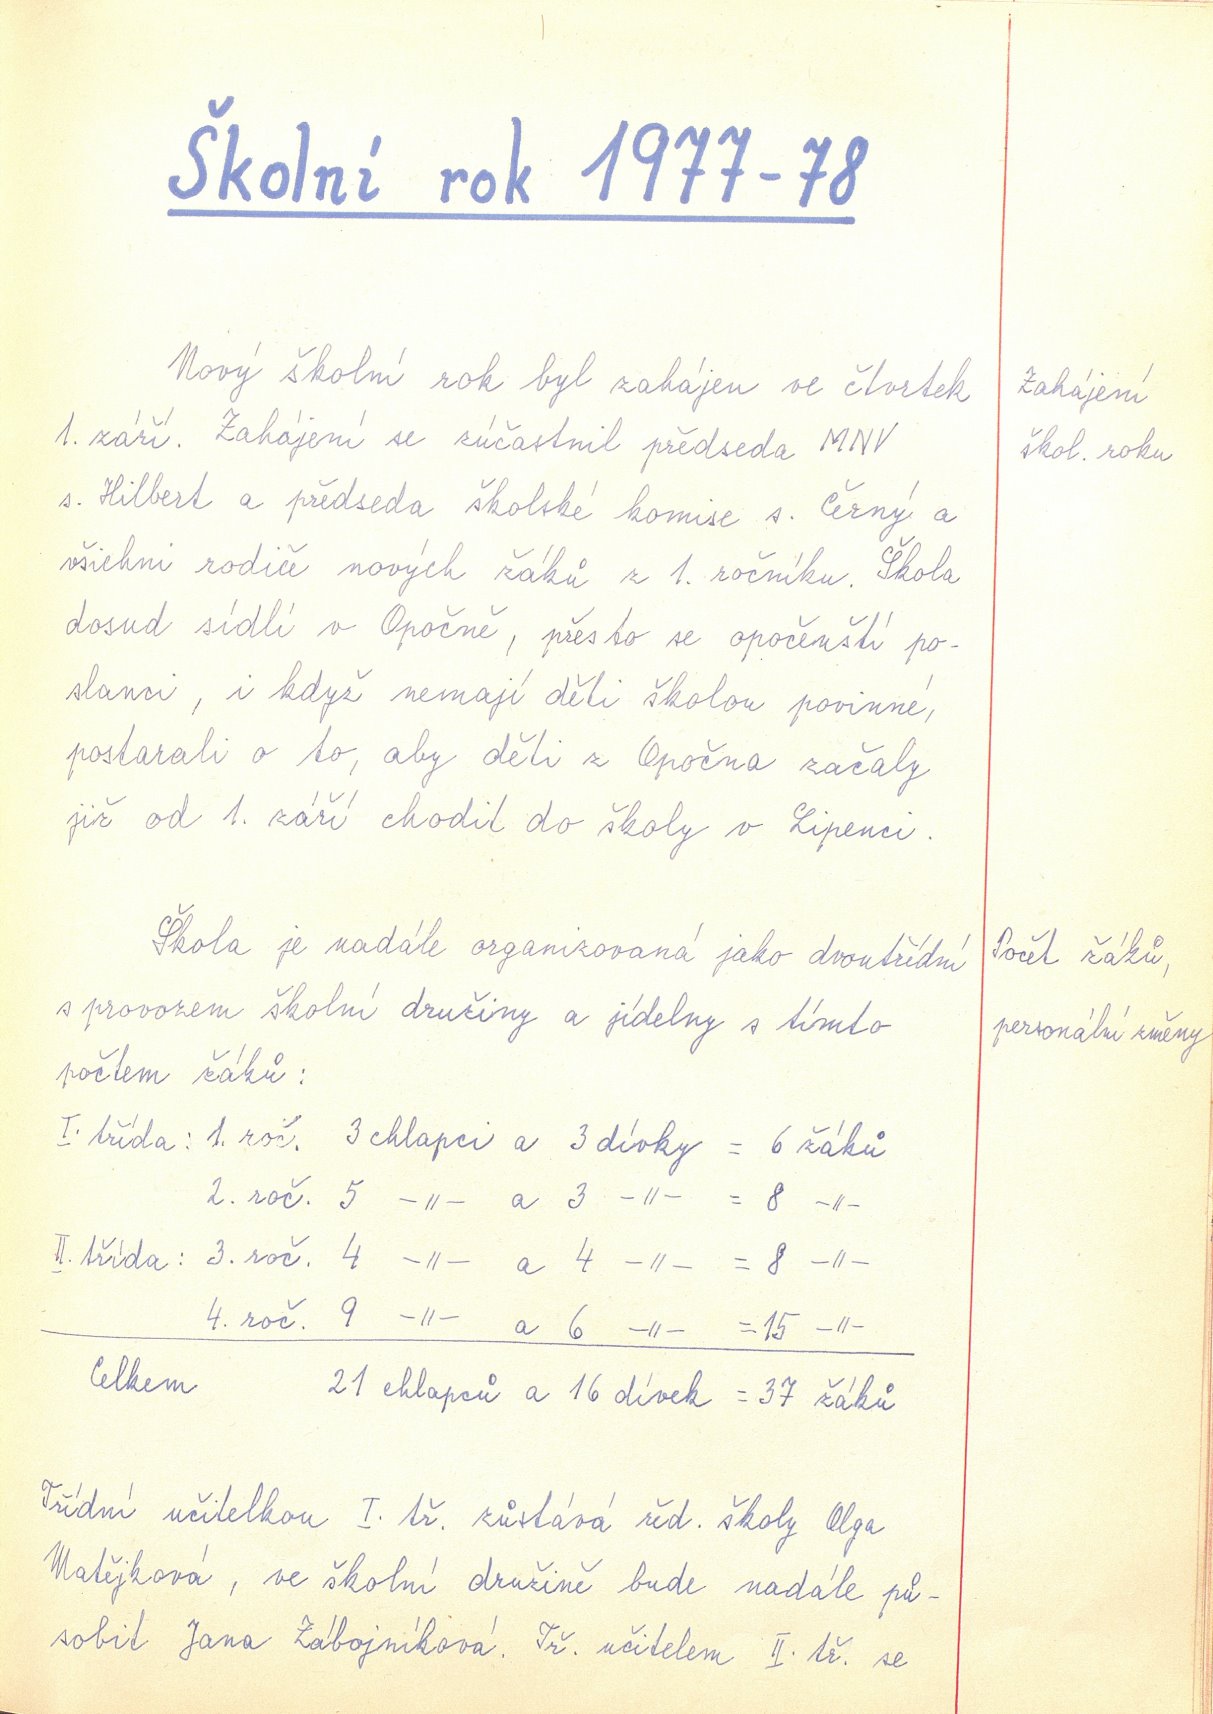 Školní rok 1977-78
Nový školní rok byl zahájen ve čtvrtek
Zahájení
1. září. Zahájení se zúčastnil předseda MNV
škol. roku
s. Hilbert a předseda školské komise s. Černý a
všichni rodiče nových žáků z 1. ročníku. Škola
dosud sídlí v Opočně, přesto se opočenští po-
slanci, i když nemají děti školou povinné,
postarali o to, aby děti z Opočna začaly
již od 1. září chodit do školy v Lipenci.
Škola je nadále organizovaná jako dvoutřídní
Počet žáků,
s provozem školní družiny a jídelny s tímto
personální změny
počtem žáků:
I. třída: 1. roč. 3 chlapci a 3 dívky = 6 žáků
2. roč. 5 -"- a 3 -"- = 8 -"-
II. třída: 3. roč. 4 -"- a 4 -"- = 8 -"-
4. roč. 9 -"- a 6 -"- = 15 -"-
Celkem 21 chlapců a 16 dívek = 37 žáků
Třídní učitelkou I. tř. zůstává řed. školy Olga
Matějková, ve školní družině bude nadále pů-
sobit Jana Zábojníková. Tř. učitelem II. tř. se